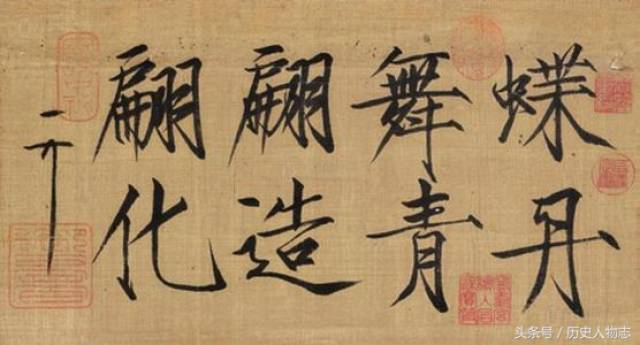 蝶舞翩翩
丹青造化
头条号 / 历史人物志